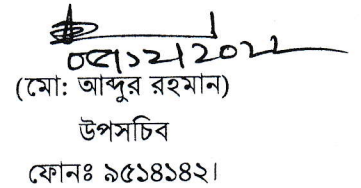 ০৫/১২/2022
(মো: আব্দুর রহমান)
উপসচিব
ফোনঃ ৯৫১৪১৪২।